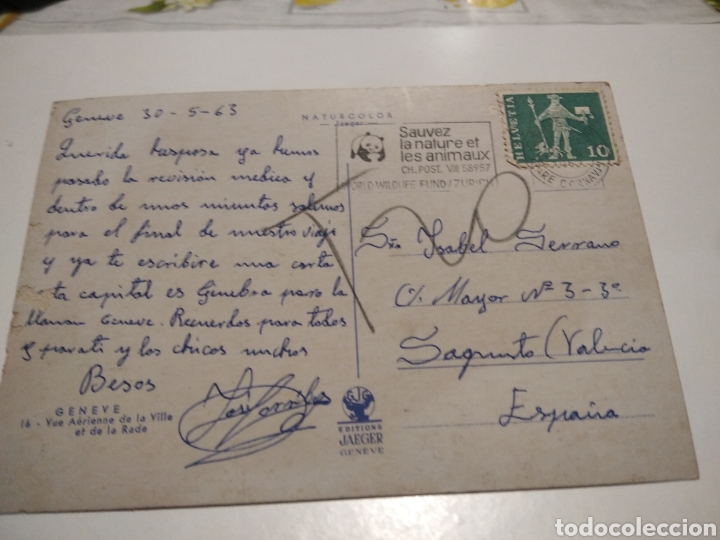 Geneve 30-5-63
Querida esposa ya hemos
pasado la revisión medica y
dentro de unos minutos salimos
para el final de nuestro viaje
y ya te escribire una carta
ta capital es Ginebra parro la
llaman Geneve. Recuerdos para todos
y parati y los chicos muchos
Besos
GENEVE
16 - Vue Aérienne de la Ville
et de la Rade
NATURCOLOR
Jaeger
EDITIONS
JAEGER
GENÈVE
Sauvez
la nature et
les animaux
CH. POST. VIII 58957
WORLD WILDLIFE FUND / ZURICH
HELVETIA
10
Sra Isabel Serrano
C/. Mayor Nº 3-3º
Sagunto (Valencia
España
todocoleccion.net